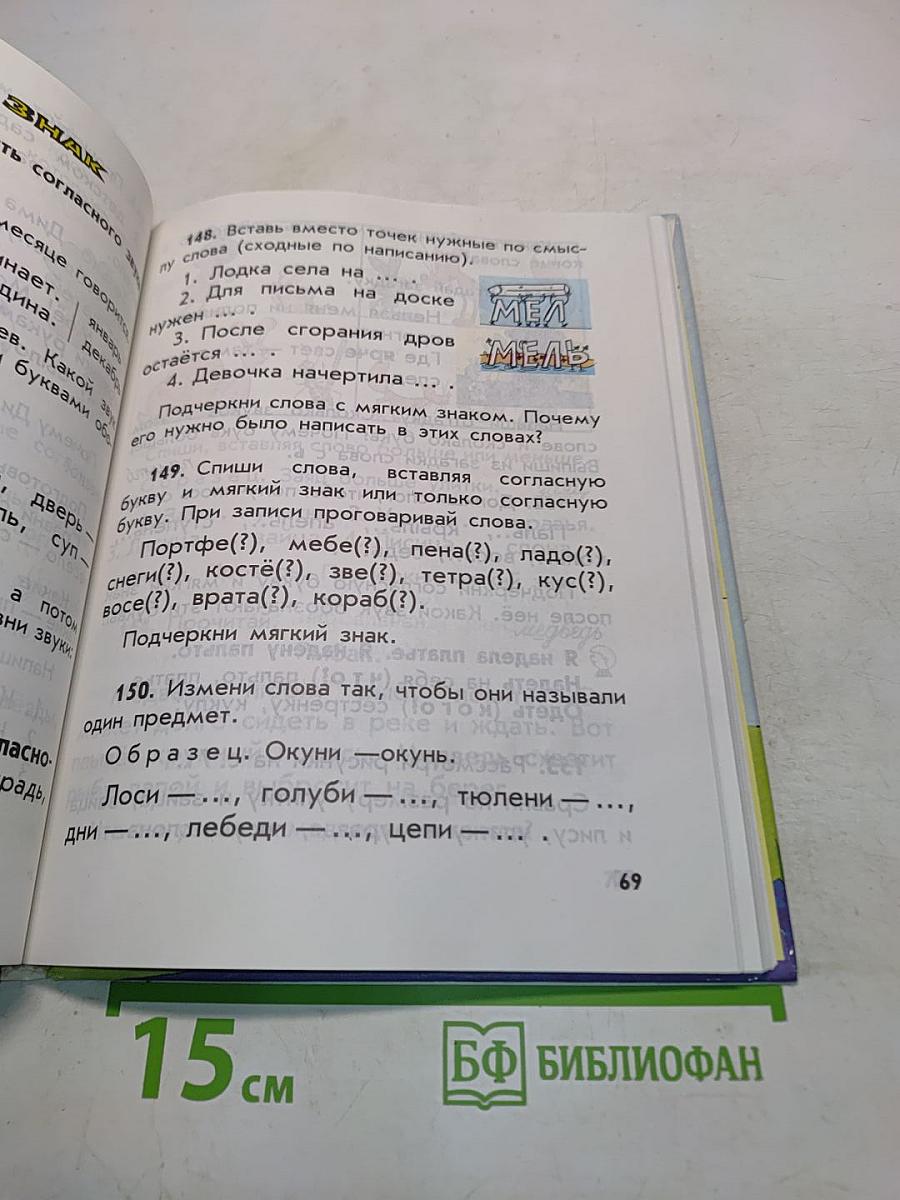 ЗНАК
ть согласного
месяце говорится
инает.
дина.
январь
декабрь
ев. Какой
буквами
дверь —
ль, суп —
а потом
зни звуки:
ласно-
традь,
148. Вставь вместо точек нужные по смыс-
лу слова (сходные по написанию).
1. Лодка села на ... .
2. Для письма на доске
нужен ... .
3. После сгорания дров
остаётся ... .
4. Девочка начертила ... .
МЕЛ
МЕЛЬ
Подчеркни слова с мягким знаком. Почему
его нужно было написать в этих словах?
149. Спиши слова, вставляя согласную
букву и мягкий знак или только согласную
букву. При записи проговаривай слова.
Портфе(?), мебе(?), пена(?), ладо(?),
снеги(?), костё(?), зве(?), тетра(?), кус(?),
восе(?), врата(?), кораб(?).
Подчеркни мягкий знак.
150. Измени слова так, чтобы они называли
один предмет.
Образец. Окуни —окунь.
Лоси — ..., голуби — ..., тюлени — ...,
дни — ..., лебеди — ..., цепи — ... .
69
15 см
БФ БИБЛИОФАН